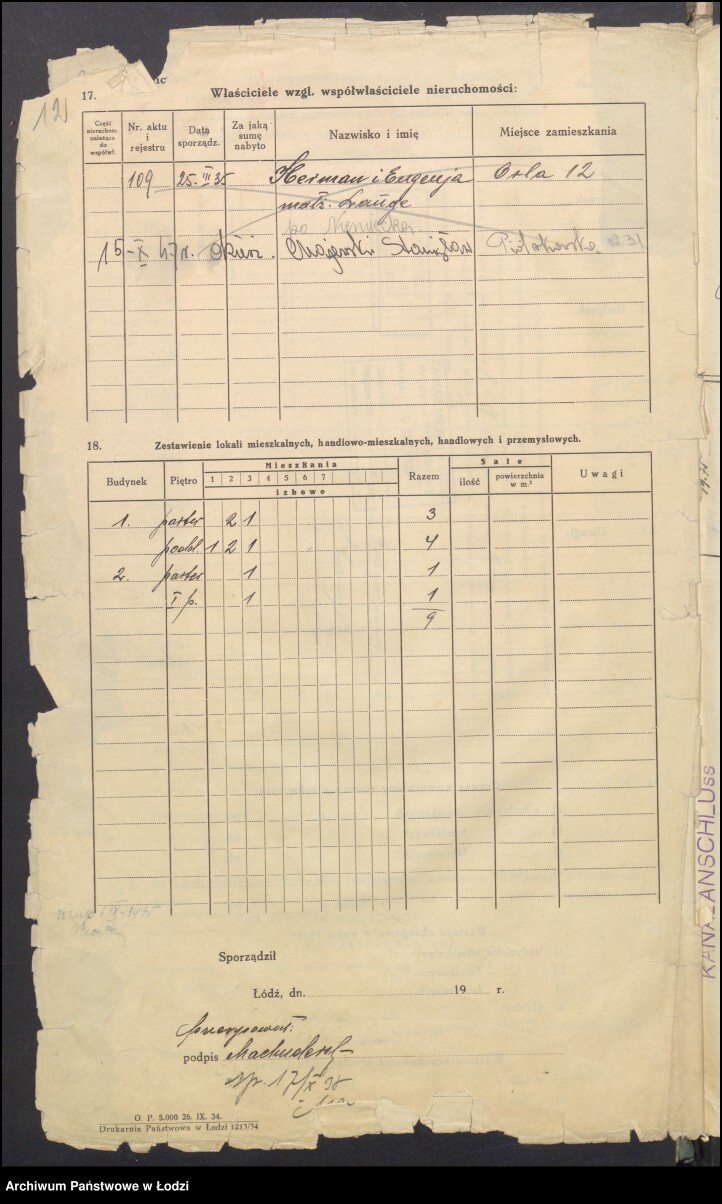 12
17. Właściciele wzgl. współwłaściciele nieruchomości:
Część nieruchom. należąca do współwł.
Nr. aktu i rejestru
Data sporządz.
Za jaką sumę nabyto
Nazwisko i imię
Miejsce zamieszkania
109 25. III 35 Herman i Eugenja Orla 12
małż. Lange
15-X 47 r. Chojewski Stanisław Piotrkowska 231
18. Zestawienie lokali mieszkalnych, handlowo-mieszkalnych, handlowych i przemysłowych.
Budynek Piętro Mieszkania Razem Sale Uwagi
1 2 3 4 5 6 7 ilość powierzchnia w m.²
izbowe
1. parter 2 1 3
poddl. 1 2 1 4
2. parter 1 1
I p. 1 1
9
Sporządził
Łódź, dn. 19 r.
podpis
17/X 38
O. P. 5.000 26. IX. 34.
Drukarnia Państwowa w Łodzi 1213/34
KANALANSCHLUSS
Archiwum Państwowe w Łodzi